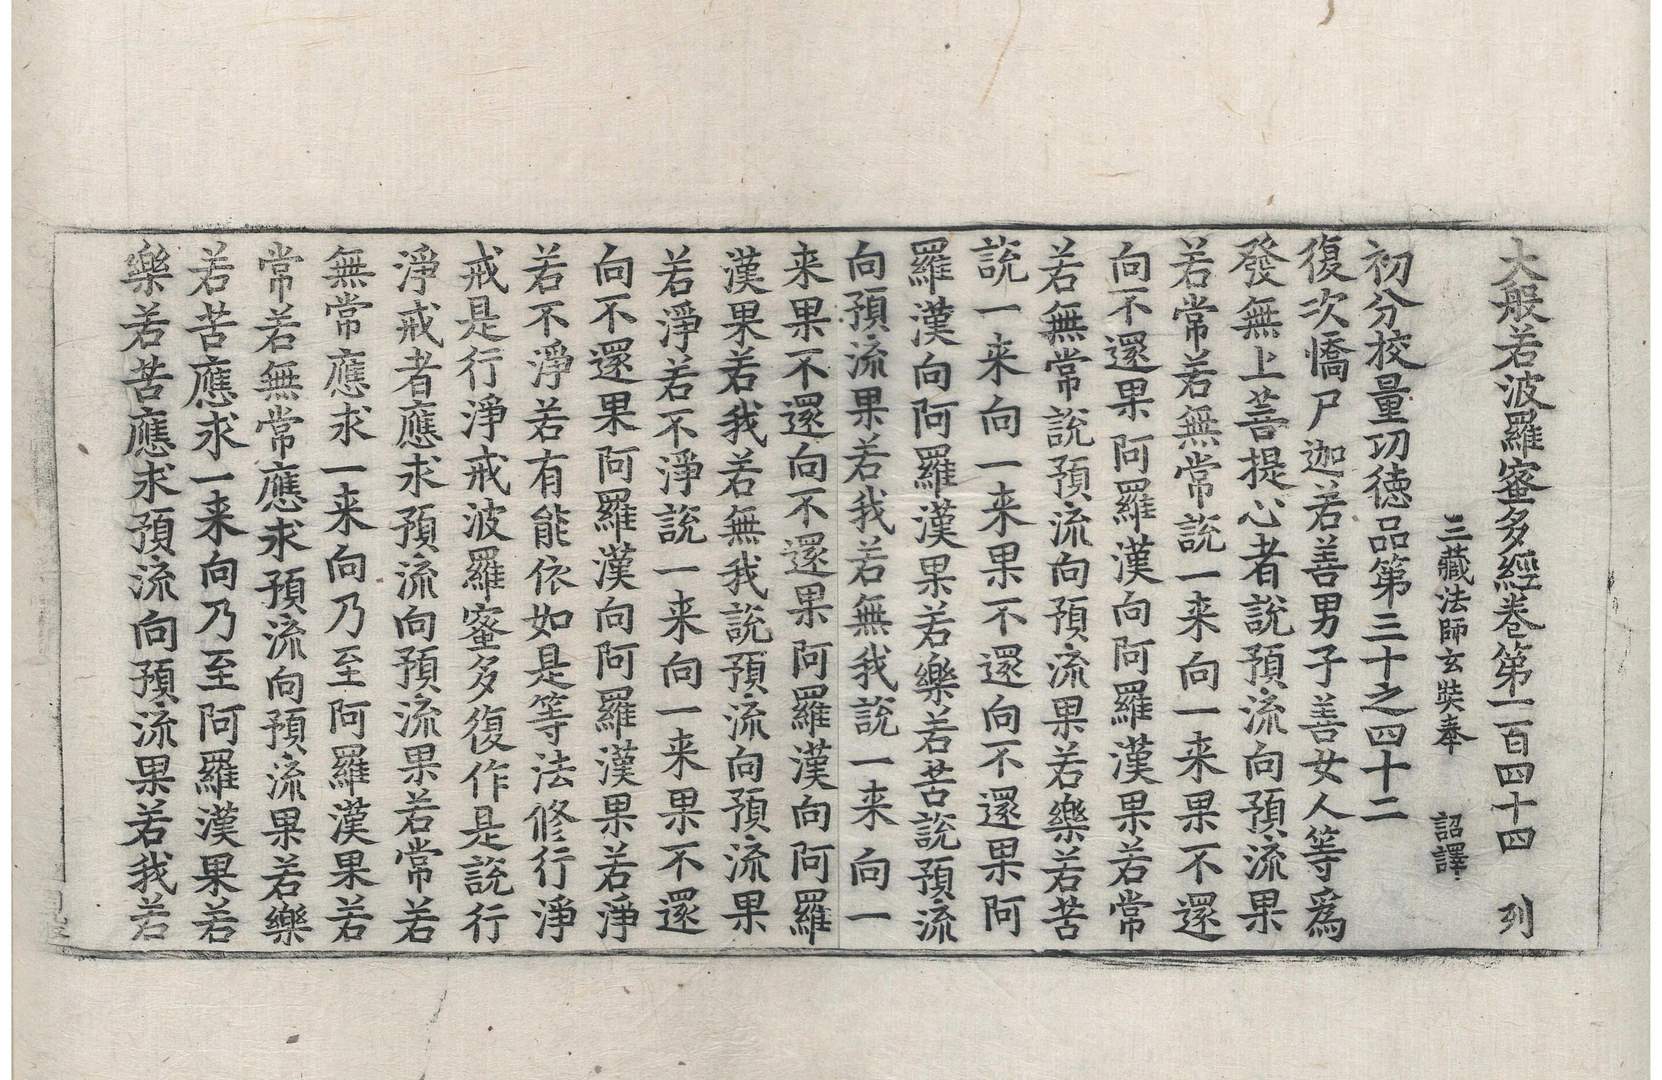 大般若波羅蜜多經卷第一百四十四　列
三藏法師玄奘奉　詔譯
初分校量功德品第三十之四十二
復次憍尸迦若善男子善女人等爲
發無上菩提心者說預流向預流果
若常若無常說一来向一来果不還
向不還果阿羅漢向阿羅漢果若常
若無常說預流向預流果若樂若苦
說一来向一来果不還向不還果阿
羅漢向阿羅漢果若樂若苦說預流
向預流果若我若無我說一来向一
来果不還向不還果阿羅漢向阿羅
漢果若我若無我說預流向預流果
若淨若不淨說一来向一来果不還
向不還果阿羅漢向阿羅漢果若淨
若不淨若有能依如是等法修行淨
戒是行淨戒波羅蜜多復作是說行
淨戒者應求預流向預流果若常若
無常應求一来向乃至阿羅漢果若
常若無常應求預流向預流果若樂
若苦應求一来向乃至阿羅漢果若
樂若苦應求預流向預流果若我若